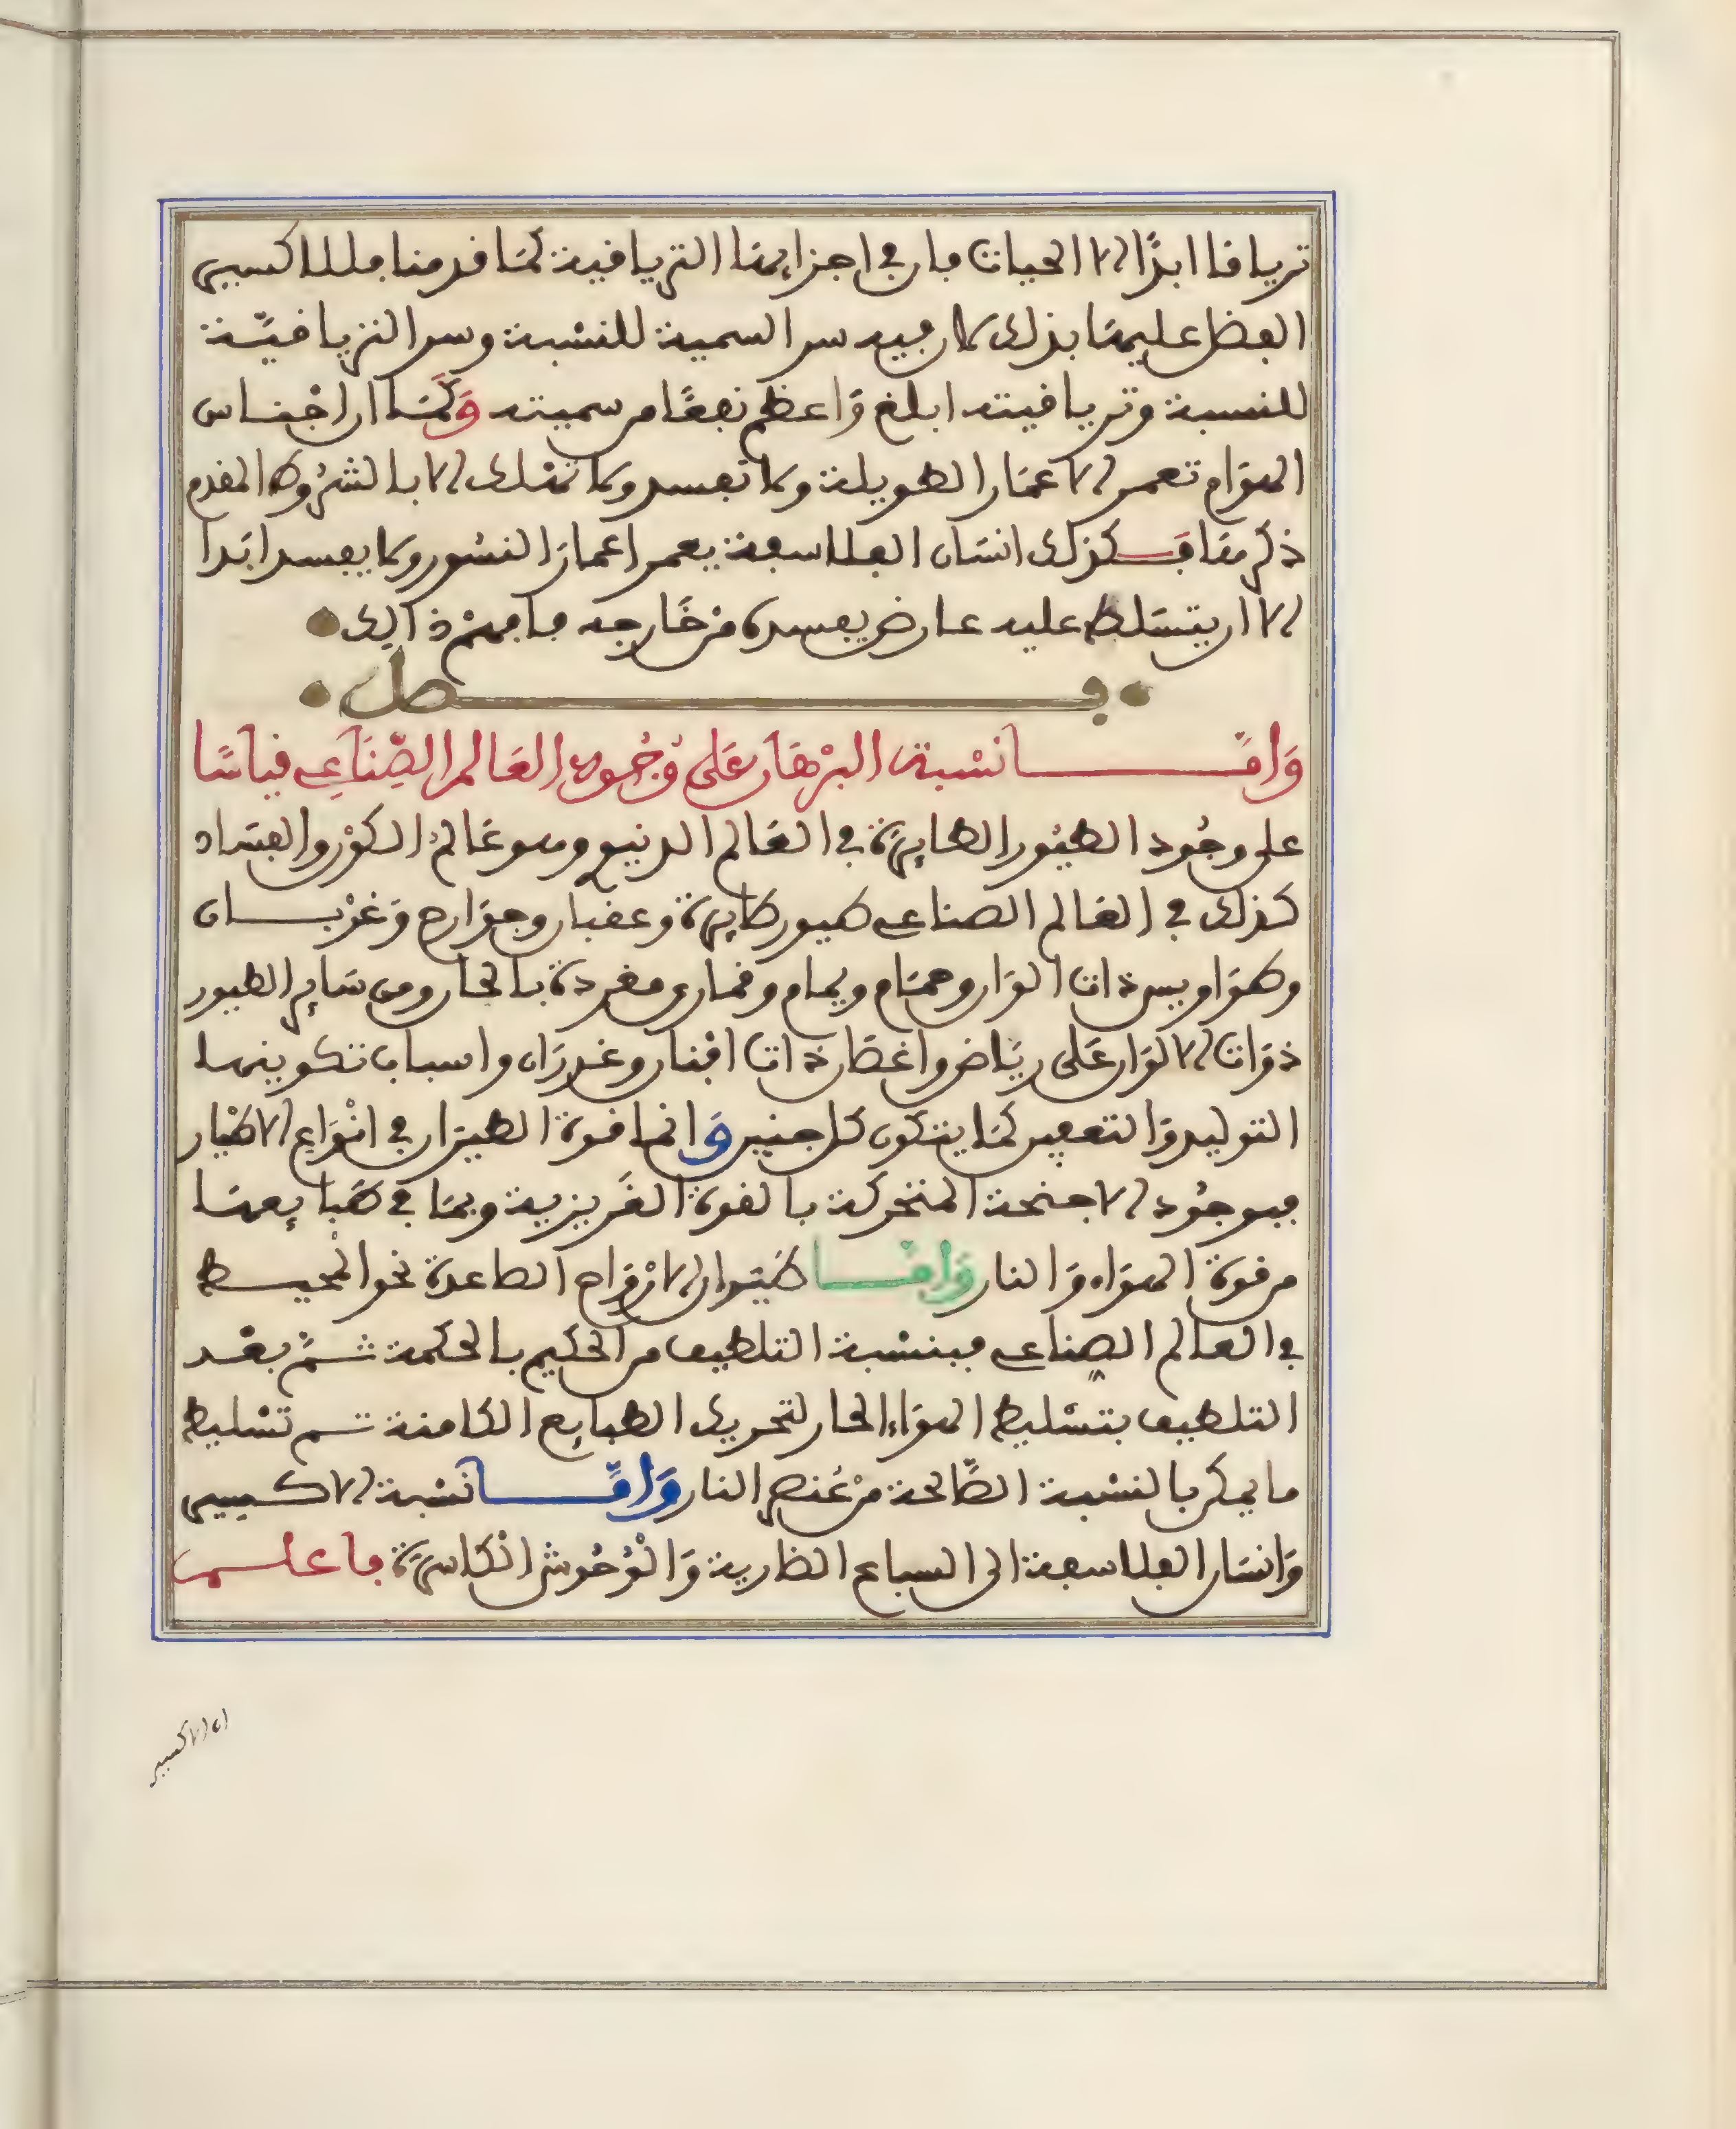 ترياقا ابدًا الا الحيات فان في اجزايها الترياقية كما قدمنا فللاكسير
الفضل عليها بذلك لان فيه سر السمية للنشبة وسر الترياقيّة
للنسبة وترياقيته ابلغ وَاعظم نفعًا من سميته وَكَمَا ان اجْناس
الهوَام تعمر الاعمَار الطويلة ولا تفسد ولا تهلك الا بالشرُوط المقدم
ذكرهَا فَكذلك انسَان الفلاسفة يعمر اعمارَ النسُور ولا يفسد ابَدا
الا ان يتسَلط عليه عارض يفسده منْ خَارجه فافهمْ ذالك
فصل
وَامَّا نسْبة البرْهَان عَلى وُجُود العَالم الصِّنَاعِي قياسًا
على وجُود الطيُور الطايرَة في العَالم الدنيي وهو عَالم الكوْن والفسَاد
كذلك في العَالم الصناعي طيور طايرة وعقبان وجوَارح وَغرْبان
وطوَاويس ذات الوَان وحمَام ويمام وقماري مغردة بالحان ومن سَاير الطيور
ذوَات الالوَان عَلى ريَاض واغصَان ذات افنان وغدرَان واسباب تكوينها
التوليد وَالتعفين كمَا يتكون كل جنين وَانما قوة الطيرَان في انْوَاع الاطْيار
فبوجُود الاجنحة المتحركة بالقوة الغَريزية وبمَا في طبَايعهَا
من قوة الهوَاء وَالنار وَامَّا طيَران الارْوَاح الصاعدة نحو المحيط
في العالم الصناعي فبنسْبة التلطيف من الحكيم بالحكمة ثمَّ بعْد
التلطيف بتسْليط الهوَاء الحار لتحريك الطبايع الكامنة ثم تسْليط
ما يمكن بالنسْبة الصَّالحة منْ عُنصر النار وَامَّا نسْبة الاكسير
وَانسَان الفلاسفة الى السباع الضارية وَالْوُحُوش الكاسرَة فاعلم
ان الاكسير